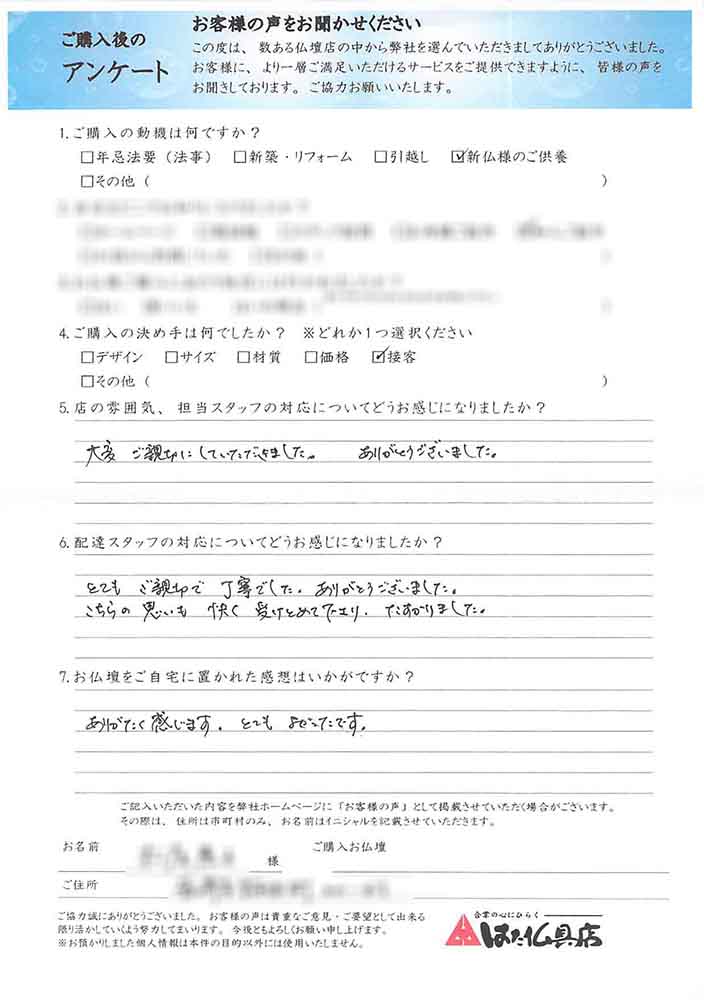 ご購入後の
アンケート
お客様の声をお聞かせください
この度は、数ある仏壇店の中から弊社を選んでいただきましてありがとうございました。
お客様に、より一層ご満足いただけるサービスをご提供できますように、皆様の声を
お聞きしております。ご協力お願いいたします。
1.ご購入の動機は何ですか?
□年忌法要(法事) □新築・リフォーム □引越し ☑新仏様のご供養
□その他( )
4.ご購入の決め手は何でしたか? ※どれか1つ選択ください
□デザイン □サイズ □材質 □価格 ☑接客
□その他( )
5.店の雰囲気、担当スタッフの対応についてどうお感じになりましたか?
大変 ご親切にしていただきました。 ありがとうございました。
6.配達スタッフの対応についてどうお感じになりましたか?
とても ご親切で 丁寧でした。ありがとうございました。
こちらの 思いも 快く 受けとめて下さり、たすかりました。
7.お仏壇をご自宅に置かれた感想はいかがですか?
ありがたく感じます。とても よかったです。
ご記入いただいた内容を弊社ホームページに『お客様の声』として掲載させていただく場合がございます。
その際は、住所は市町村のみ、お名前はイニシャルを記載させていただきます。
お名前 様 ご購入お仏壇
ご住所
ご協力誠にありがとうございました。お客様の声は貴重なご意見・ご要望として出来る
限り活かしていくよう努力してまいります。今後ともよろしくお願い申し上げます。
※お預かりしました個人情報は本件の目的以外には使用いたしません。
合掌の心にひらく
はた仏具店